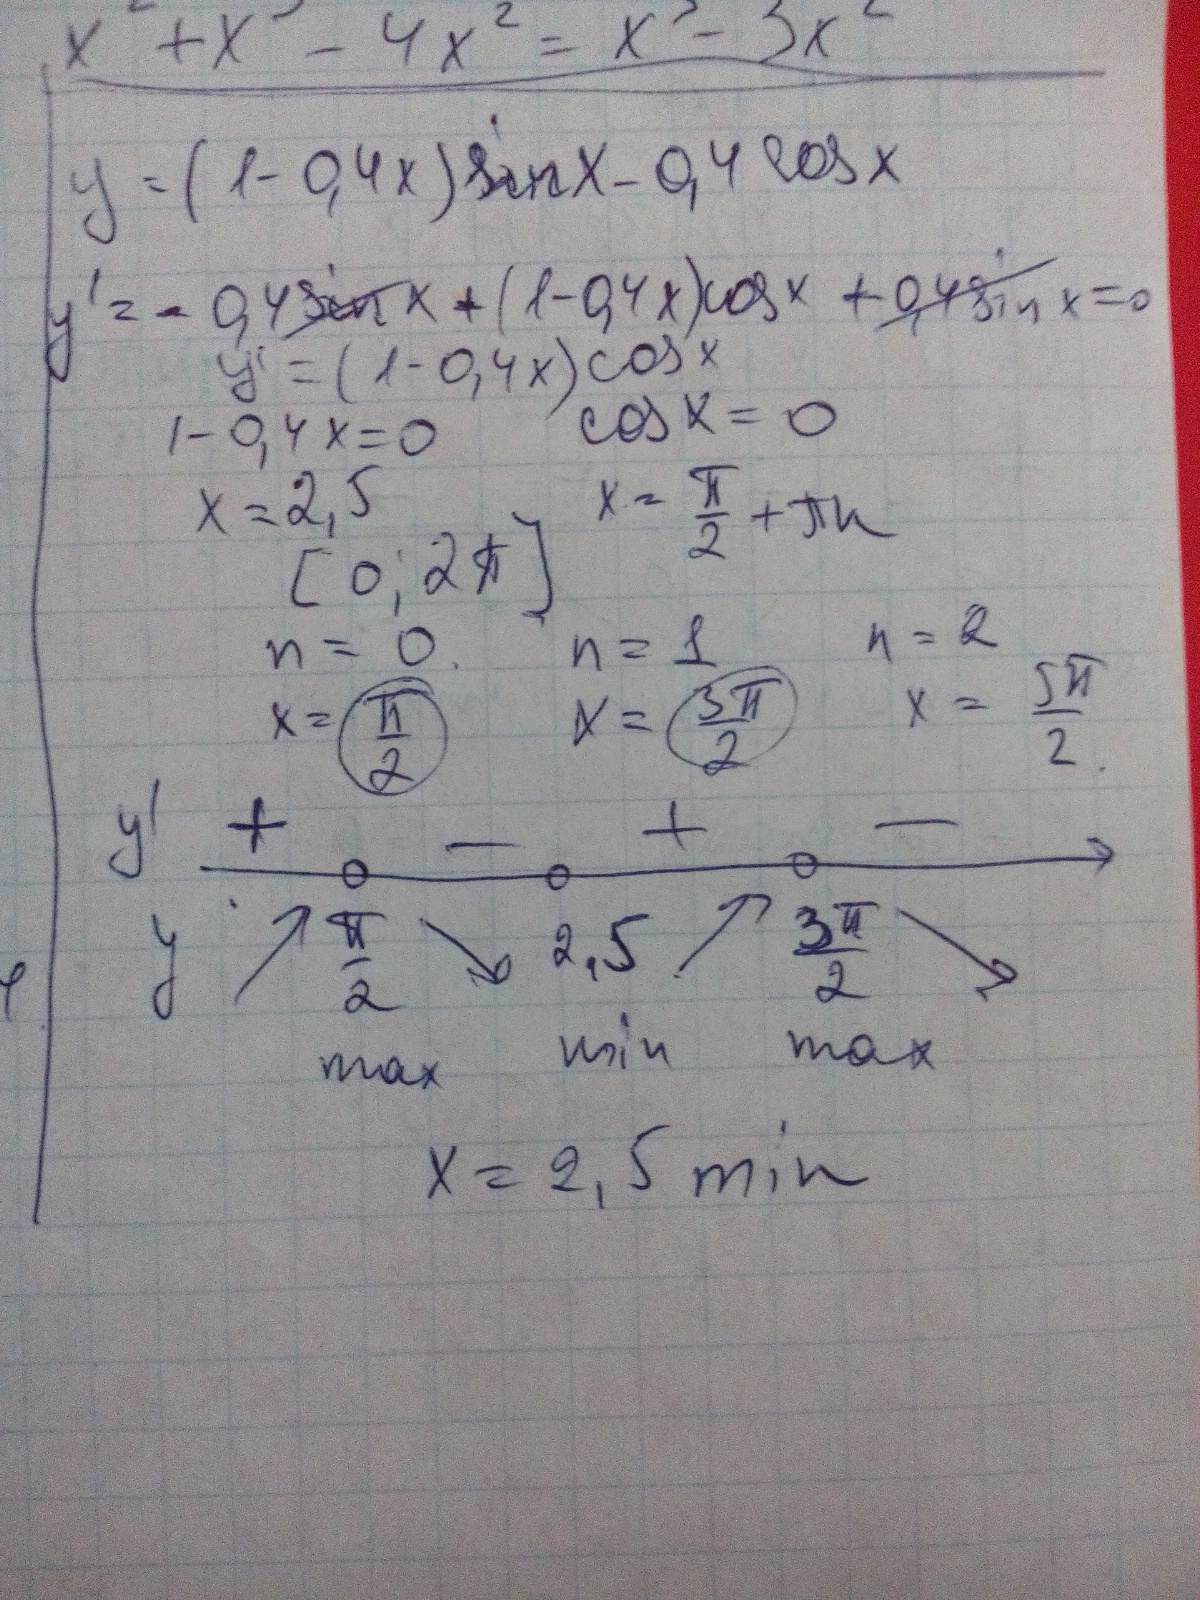 x² + x³ - 4x² = x³ - 3x²
y = (1 - 0,4x) sin x - 0,4 cos x
y' = - 0,4 sin x + (1 - 0,4x) cos x + 0,4 sin x = 0
y' = (1 - 0,4x) cos x
1 - 0,4x = 0 cos x = 0
x = 2,5 x = π/2 + πn
[0; 2π]
n = 0. n = 1 n = 2
x = π/2 x = 3π/2 x = 5π/2.
y' + - + -
y π/2 2,5 3π/2
max min max
x = 2,5 min